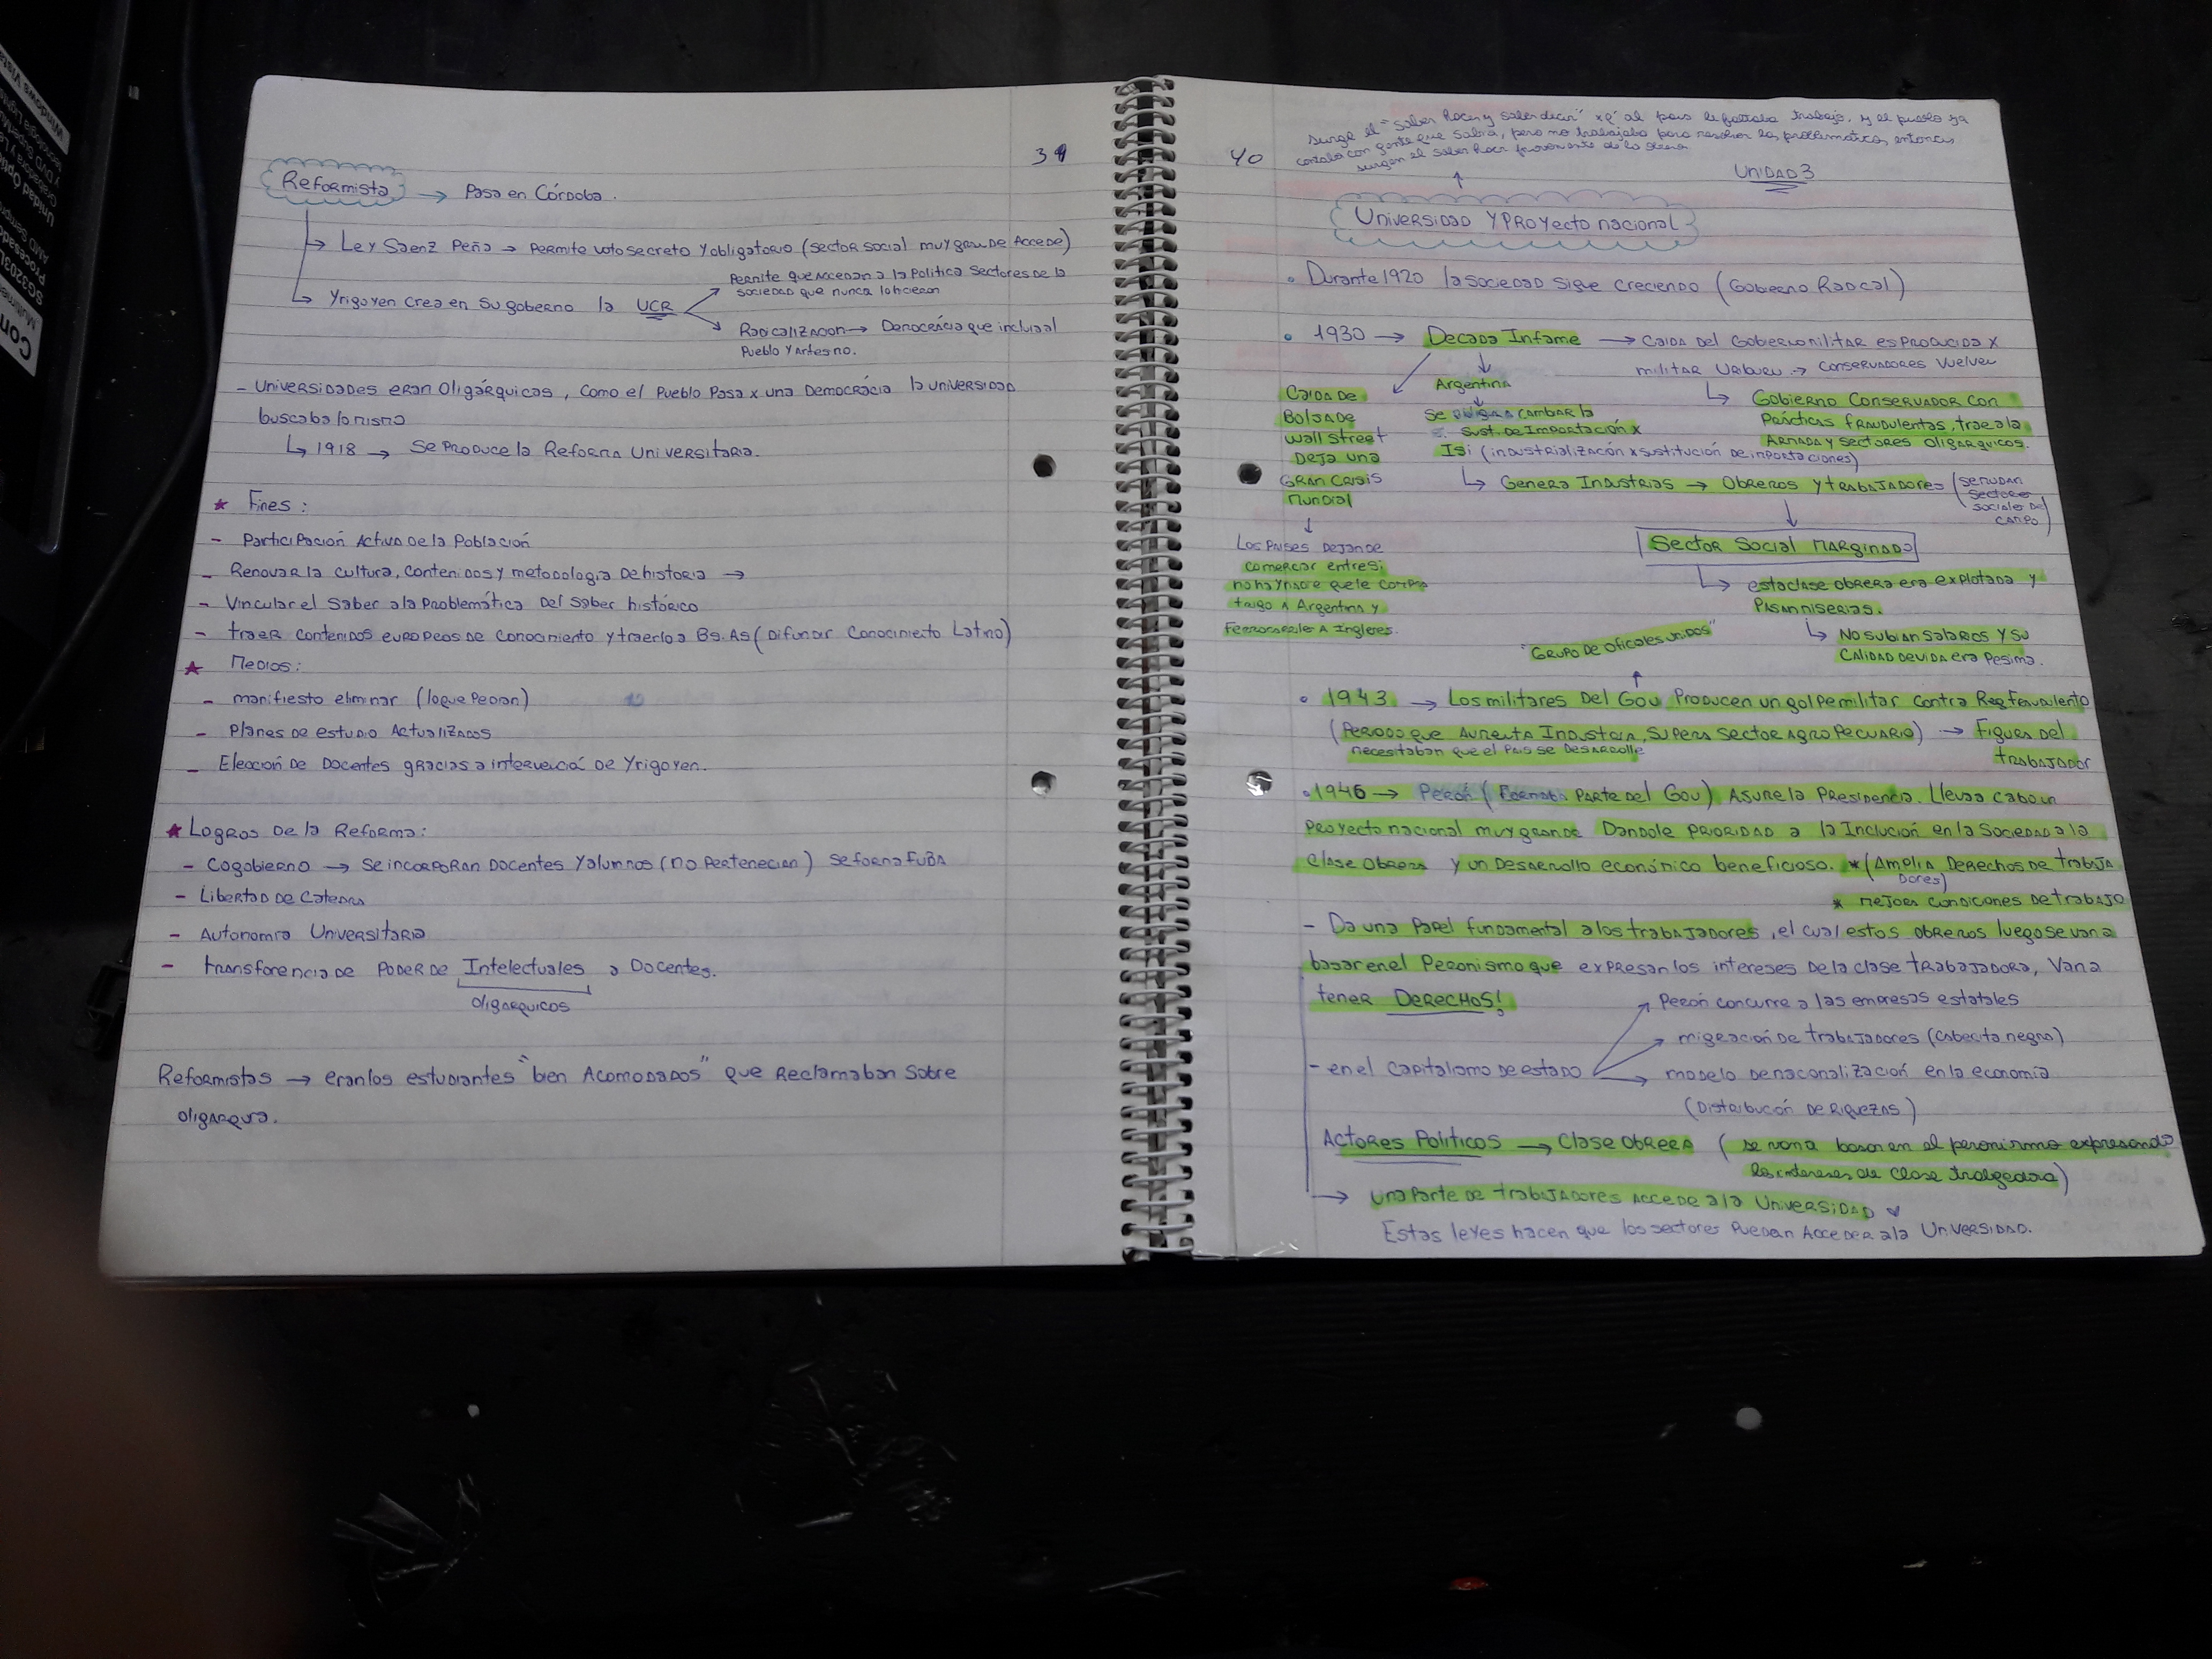 39
Reformista → Pasa en Córdoba.
↳ Ley Saenz Peña → Permite voto secreto y obligatorio (sector social muy grande accede)
↳ Yrigoyen crea en su gobierno la UCR
Permite que accedan a la Politica sectores de la
sociedad que nunca lo hicieron
Radicalizacion → Democrácia que incluia al
Pueblo y antes no.
- Universidades eran Oligárquicas, como el Pueblo Pasa x una Democrácia la universidad
buscaba lo mismo
↳ 1918 → Se produce la Reforma Universitaria.
★ Fines:
- Participación Activa de la Población
- Renovar la cultura, contenidos y metodologia de historia →
- Vincular el saber a la Problemática del saber histórico
- traer contenidos europeos de conocimiento y traerlo a Bs.As (Difundir Conocimiento Latino)
★ Medios:
- manifiesto eliminar (lo que Pedian)
- Planes de estudio Actualizados
- Elección de Docentes gracias a intervenció de Yrigoyen.
★ Logros de la Reforma:
- Cogobierno → se incorporan docentes y alumnos (no Pertenecian) se forma FUBA
- Libertad de Catedra
- Autonomia Universitaria
- transferencia de Poder de Intelectuales a Docentes.
oligarquicos
Reformistas → eran los estudiantes "bien Acomodados" que Reclamaban sobre
oligarquia.
40
surge el "saber hacer y saber decir" xq' al pais le faltaba trabajo, y el pueblo ya
contaba con gente que sabia, pero no trabajaba para resolver las problematicas, entonces
surgen el saber hacer proveniente de lo
Unidad 3
Universidad y Proyecto nacional
• Durante 1920 la sociedad sigue creciendo (Gobierno Radical)
• 1930 → Decada Infame → Caida del Gobierno militar es producida x
militar Uriburu → conservadores vuelven
↳ Gobierno Conservador con
Prácticas fraudulentas, trae a la
Armada y sectores oligarquicos.
Caida de
Bolsa de
Wall Street
Deja una
Gran Crisis
mundial
↓
Los Paises dejan de
comerciar entre si;
no hay nadie que le compre
trigo a Argentina y
Ferrocarriles a Ingleses.
Argentina
↓
Se obliga a cambiar la
Sust. de Importación x
Isi (industrialización x sustitución de importaciones)
↳ Genera Industrias → Obreros y trabajadores (se mudan
sectores
sociales del
campo)
Sector Social Marginado
↳ esta clase obrera era explotada y
Pasan miserias.
↳ No subian salarios y su
calidad de vida era Pesima.
"Grupo de oficiales unidos"
• 1943 → Los militares del Gou Producen un golpe militar contra Reg Fraudulento
(Periodo que Aumenta Industria, Supera Sector Agropecuario) → Figura del
trabajador
necesitaban que el Pais se desarrolle
• 1946 → Perón (Formaba parte del Gou) Asume la Presidencia. Lleva a cabo un
proyecto nacional muy grande Dandole Prioridad a la Inclución en la Sociedad a la
Clase Obrera y un Desarrollo económico beneficioso. *(Amplia Derechos de trabaja
dores)
* mejora condiciones de trabajo
- Da una Papel fundamental a los trabajadores, el cual estos obreros luego se van a
basar en el Peronismo que expresan los intereses de la clase trabajadora, Van a
tener DERECHOS!
- en el capitalismo de estado
Perón concurre a las empresas estatales
migración de trabajadores (cabecita negra)
modelo de nacionalización en la economia
(Distribución de Riquezas)
Actores Politicos → Clase Obrera (se van a basar en el peronismo expresando
los intereses de clase trabajadora)
→ una Parte de trabajadores accede a la Universidad
Estas leyes hacen que los sectores Puedan Acceder a la Universidad.